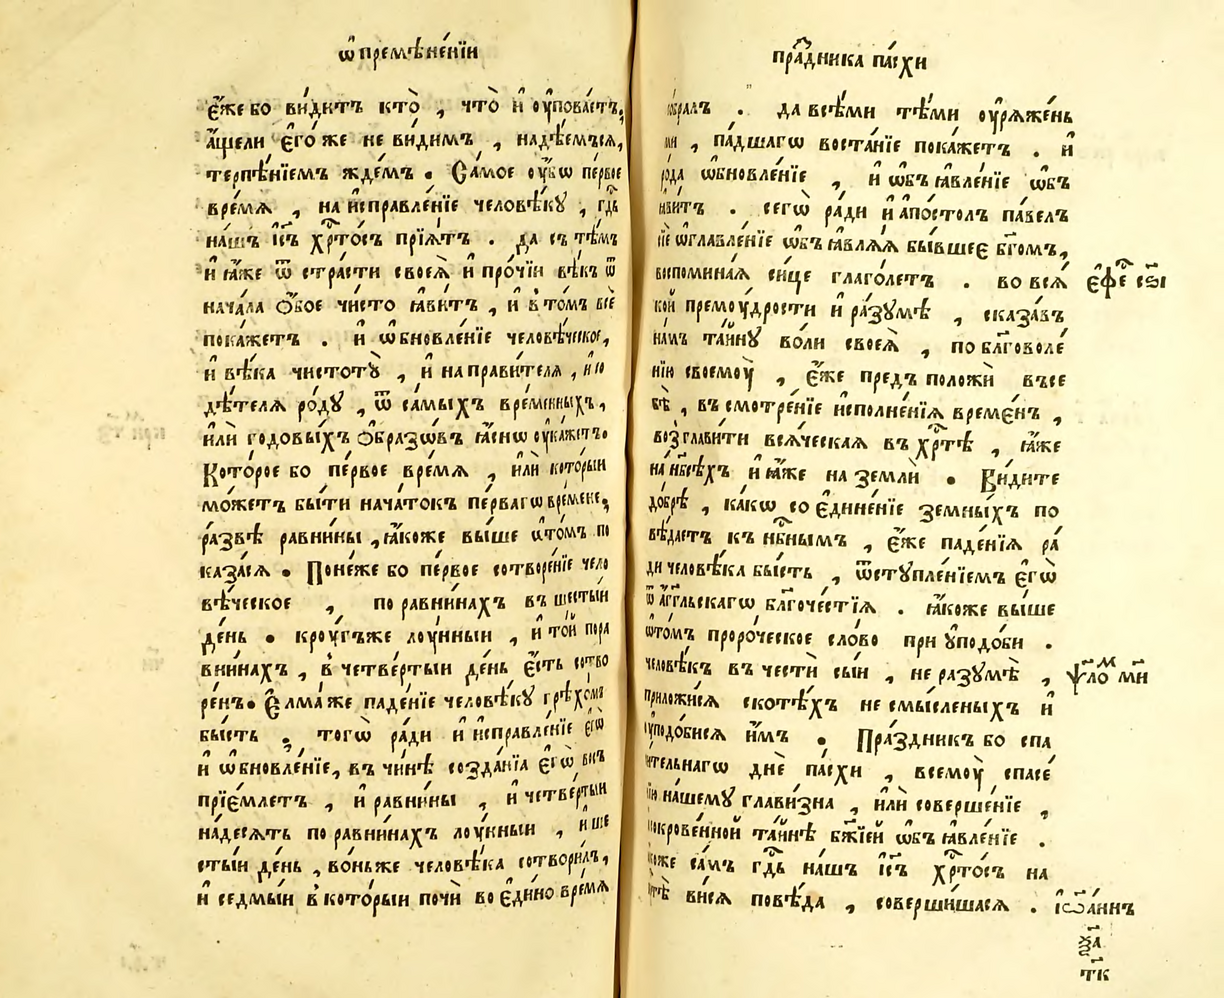 ѡ҆ премѣне́нїи
є҆́же бо ви́дитъ кто̀ , что̀ и҆ ᲂу҆пова́етъ;
а҆́щели є҆го́ же не ви́димъ , надѣ́емъся,
терпѣ́нїемъ жде́мъ . Са́мое ᲂу҆́бѡ пе́рвое
вре́мѧ , на и҆справле́нїе человѣ́кꙋ , гд҇ь
на́шъ і҆с҃ъ хр҇то́съ прїѧ́тъ . да съ тѣ́мъ
и҆ ꙗ҆́же ѿ стра́сти своеѧ̀ и҆ про́чїи вѣ́къ ѿ
нача́ла ѻ҆́бое чи́сто ꙗ҆ви́тъ , и҆ в̾ то́мъ всѐ
пока́жетъ . и҆ ѡ҆бновле́нїе человѣ́ческое,
и҆ вѣ́ка чистотꙋ̀ , и҆ направи́телѧ , и҆ со
дѣ́телѧ ро́дꙋ , ѿ са́мыхъ вре́менныхъ,
и҆лѝ годовы́хъ ѻ҆́бразѡвъ ꙗ҆́снѡ ᲂу҆ка́жетъ.
Кото́рое бо пе́рвое вре́мѧ , и҆лѝ кото́рыи
мо́жетъ бы́ти нача́токъ пе́рвагѡ вре́мене;
ра́звѣ равни́ны , ꙗ҆́коже вы́ше ѡ҆ то́мъ по
каза́сѧ . Поне́же бо пе́рвое сотворе́нїе чело
вѣ́ческое , по равни́нахъ въ шесты́и
де́нь . крᲂу́гъже лᲂу́нныи , и҆ то́й по ра
вни́нахъ , в̾ четве́ртыи де́нь є҆́сть сотво
ре́нъ. Є҆лма́ же паде́нїе человѣ́кꙋ грѣхо́мъ
бы́сть . тогѡ̀ ра́ди и҆ и҆справле́нїе є҆гѡ̀
и҆ ѡ҆бновле́нїе, въ чи́нѣ созда́нїѧ є҆гѡ̀
прїе́млетъ , и҆ равни́ны , и҆ четве́ртыи
на́десѧть по равни́нахъ лᲂу́нныи , и҆ ше
сты́и де́нь , во́ньже человѣ́ка сотвори́лъ,
и҆ седмы́и в̾ кото́рыи почѝ во є҆ди́но вре́мѧ
пра́здника па́схи
собра́лъ . да всѣ́ми тѣ́ми ᲂу҆рѧжє́нь
ми , па́дшагѡ воста́нїе пока́жетъ . и҆
ро́да ѡ҆бновле́нїе , и҆ ѡ҆бъꙗвле́нїе ѡ҆бъ
ꙗви́тъ . сегѡ̀ ра́ди и҆ а҆по́столъ па́велъ
сїѐ ѡ҆главле́нїе ѡ҆бъꙗвлѧ́ѧ бы́вшеє бг҃омъ,
воспомина́ѧ си́це глаго́летъ . во всѧ́
кой премᲂу́дрости и҆ ра́зꙋмѣ , сказа́въ
на́мъ та́йнꙋ во́ли своеѧ̀ , по бл҃говоле́
нїю своемᲂу̀ , є҆́же предъ положѝ въ се
бѣ̀ , въ смотре́нїе и҆сполне́нїѧ време́нъ ,
возглави́ти всѧ́ческаѧ въ хр҇тѣ̀ , ꙗ҆́же
на нб҃сѣ́хъ и҆ ꙗ҆́же на землѝ . Ви́дите
до́брѣ , ка́кѡ со є҆дине́нїе земны́хъ по
вѣ́даетъ къ нб҇нымъ , є҆́же паде́нїѧ ра́
ди человѣ́ка бы́сть , ѿступле́нїемъ є҆гѡ̀
ѿ а҆́гг҃льскагѡ бл҃гоче́стїѧ . ꙗ҆́коже вы́ше
ѡ҆ то́мъ проро́ческое сло́во при ᲂу҆подо́би .
человѣ́къ въ че́сти сы́и , не разꙋмѣ̀ ,
приложи́сѧ скотѣ́хъ несмы́сленыхъ и҆
ᲂу҆подо́бисѧ и҆́мъ . Пра́здникъ бо спа
си́тельнагѡ днѐ па́схи , всемᲂу̀ спасе́
нїю на́шемꙋ глави́зна , и҆лѝ соверше́нїе ,
покрове́нной та́йнѣ бж҃їей ѡ҆бъꙗвле́нїе .
ꙗ҆́коже са́мъ гд҇ь на́шъ і҆с҃ъ хр҇то́съ на
кр҇тѣ̀ висѧ̀ повѣ́да , соверши́шасѧ .
є҆фе҇ с҃ѕі
ѱ҃ло м҃и
і҆ѡа́ннъ
з҃а
т҃к